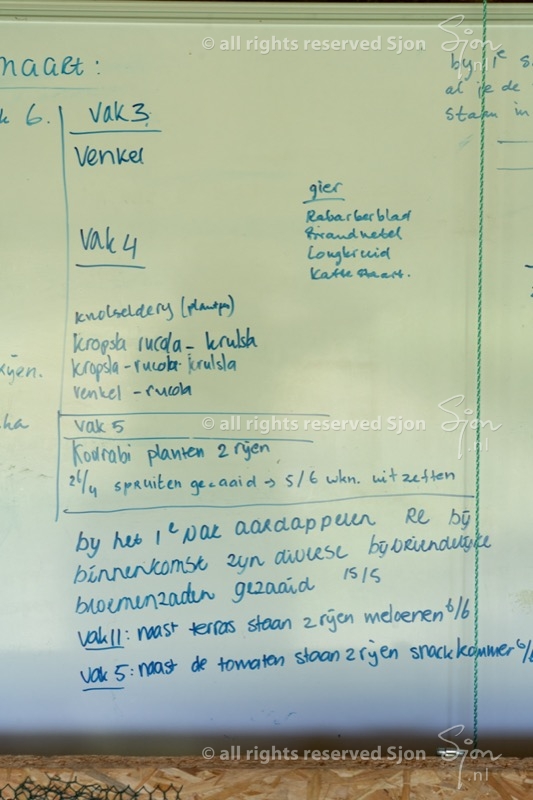 © all rights reserved Sjon
Sjon.nl
maart:
6.
vak 3
Venkel
by 1e
al je de
staan in
gier
Rabarberblad
Brandnetel
Longkruid
Kattestaart.
Vak 4
knolseldery (plantjes)
kropsla rucola - krulsla
kropsla - rucola - krulsla
venkel - rucola
vak 5
Koolrabi planten 2 rijen
26/4 spruiten gezaaid → 5/6 wkn. uitzetten
© all rights reserved Sjon
Sjon.nl
by het 1e vak aardappelen Re bij
binnenkomst zyn diverse bijvriendelijke
bloemenzaden gezaaid 15/5
Vak 11: naast terras staan 2 rijen meloenen 6/6
Vak 5: naast de tomaten staan 2 rijen snackkommer 6/6
© all rights reserved Sjon
Sjon.nl